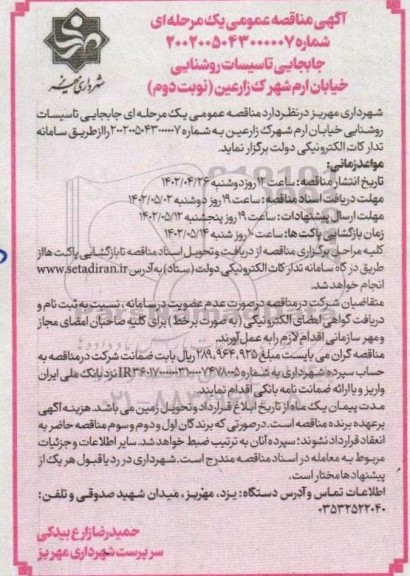 آگهی مناقصه عمومی یک مرحله ای
شماره ۲۰۰۲۰۰۵۰۴۳۰۰۰۰۰۷
جابجایی تاسیسات روشنایی
خیابان ارم شهرک زارعین (نوبت دوم)
شهرداری مهریز
شهرداری مهریز در نظر دارد مناقصه عمومی یک مرحله ای جابجایی تاسیسات
روشنایی خیابان ارم شهرک زارعین به شماره ۲۰۰۲۰۰۵۰۴۳۰۰۰۰۰۷ را از طریق سامانه
تدارکات الکترونیکی دولت برگزار نماید.
مواعد زمانی:
تاریخ انتشار مناقصه: ساعت ۱۲ روز دوشنبه ۱۴۰۲/۰۴/۲۶
مهلت دریافت اسناد مناقصه: ساعت ۱۹ روز دوشنبه ۱۴۰۲/۰۵/۰۲
مهلت ارسال پیشنهادات: ساعت ۱۹ روز پنجشنبه ۱۴۰۲/۰۵/۱۲
زمان بازگشایی پاکت ها: ساعت ۱۰ روز شنبه ۱۴۰۲/۰۵/۱۴
کلیه مراحل برگزاری مناقصه از دریافت و تحویل اسناد مناقصه تا بازگشایی پاکت ها از
طریق درگاه سامانه تدارکات الکترونیکی دولت (ستاد) به آدرس www.setadiran.ir
انجام خواهد شد.
متقاضیان شرکت در مناقصه در صورت عدم عضویت در سامانه، نسبت به ثبت نام و
دریافت گواهی امضای الکترونیکی (به صورت برخط) برای کلیه صاحبان امضای مجاز
و مهر سازمانی اقدام لازم را به عمل آورند.
مناقصه گران می بایست مبلغ ۲۸۹,۹۶۴,۹۲۵ ریال بابت ضمانت شرکت در مناقصه به
حساب سپرده شهرداری به شماره نزد بانک ملی ایران
واریز و یا ارائه ضمانت نامه بانکی اقدام نمایند.
مدت پیمان یک ماه از تاریخ ابلاغ قرارداد و تحویل زمین می باشد. هزینه آگهی
بر عهده برنده مناقصه است. در صورتی که برندگان اول و دوم و سوم مناقصه حاضر به
انعقاد قرارداد نشوند؛ سپرده آنان به ترتیب ضبط خواهد شد. سایر اطلاعات و جزئیات
مربوط به معامله در اسناد مناقصه مندرج است. شهرداری در رد یا قبول هر یک از
پیشنهادها مختار است.
اطلاعات تماس و آدرس دستگاه: یزد، مهریز، میدان شهید صدوقی و تلفن:
۰۳۵۳۲۵۲۲۰۴۰
حمیدرضا زارع بیدکی
سرپرست شهرداری مهریز